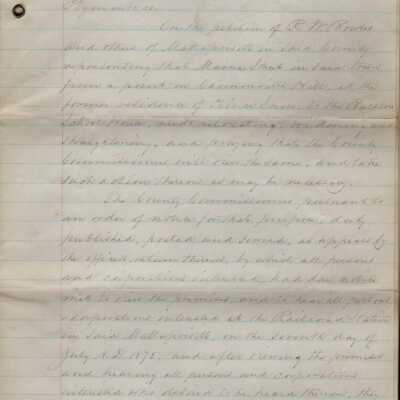 Plymouth ss.
On the petition of R. W. Rowes
and others of Mattapoisett in said County
representing that Main Street in said Town
from a point on Cannonville Hill, at the
former residence of to the
School House, needs relocating, widening and
straightening, and praying that the County
Commissioners will view the same, and take
such action thereon as may be necessary.
The County Commissioners, pursuant to
an order of notice for that purpose, duly
published, posted and served, as appears by
the officer's return thereon, by which all persons
and corporations interested, had due notice
met to view the premises, and to hear all persons
& corporations interested at the Railroad Station
in said Mattapoisett, on the seventh day of
July A.D. 187 , and after viewing the premises
and hearing all persons and corporations
interested who desired to be heard thereon, the